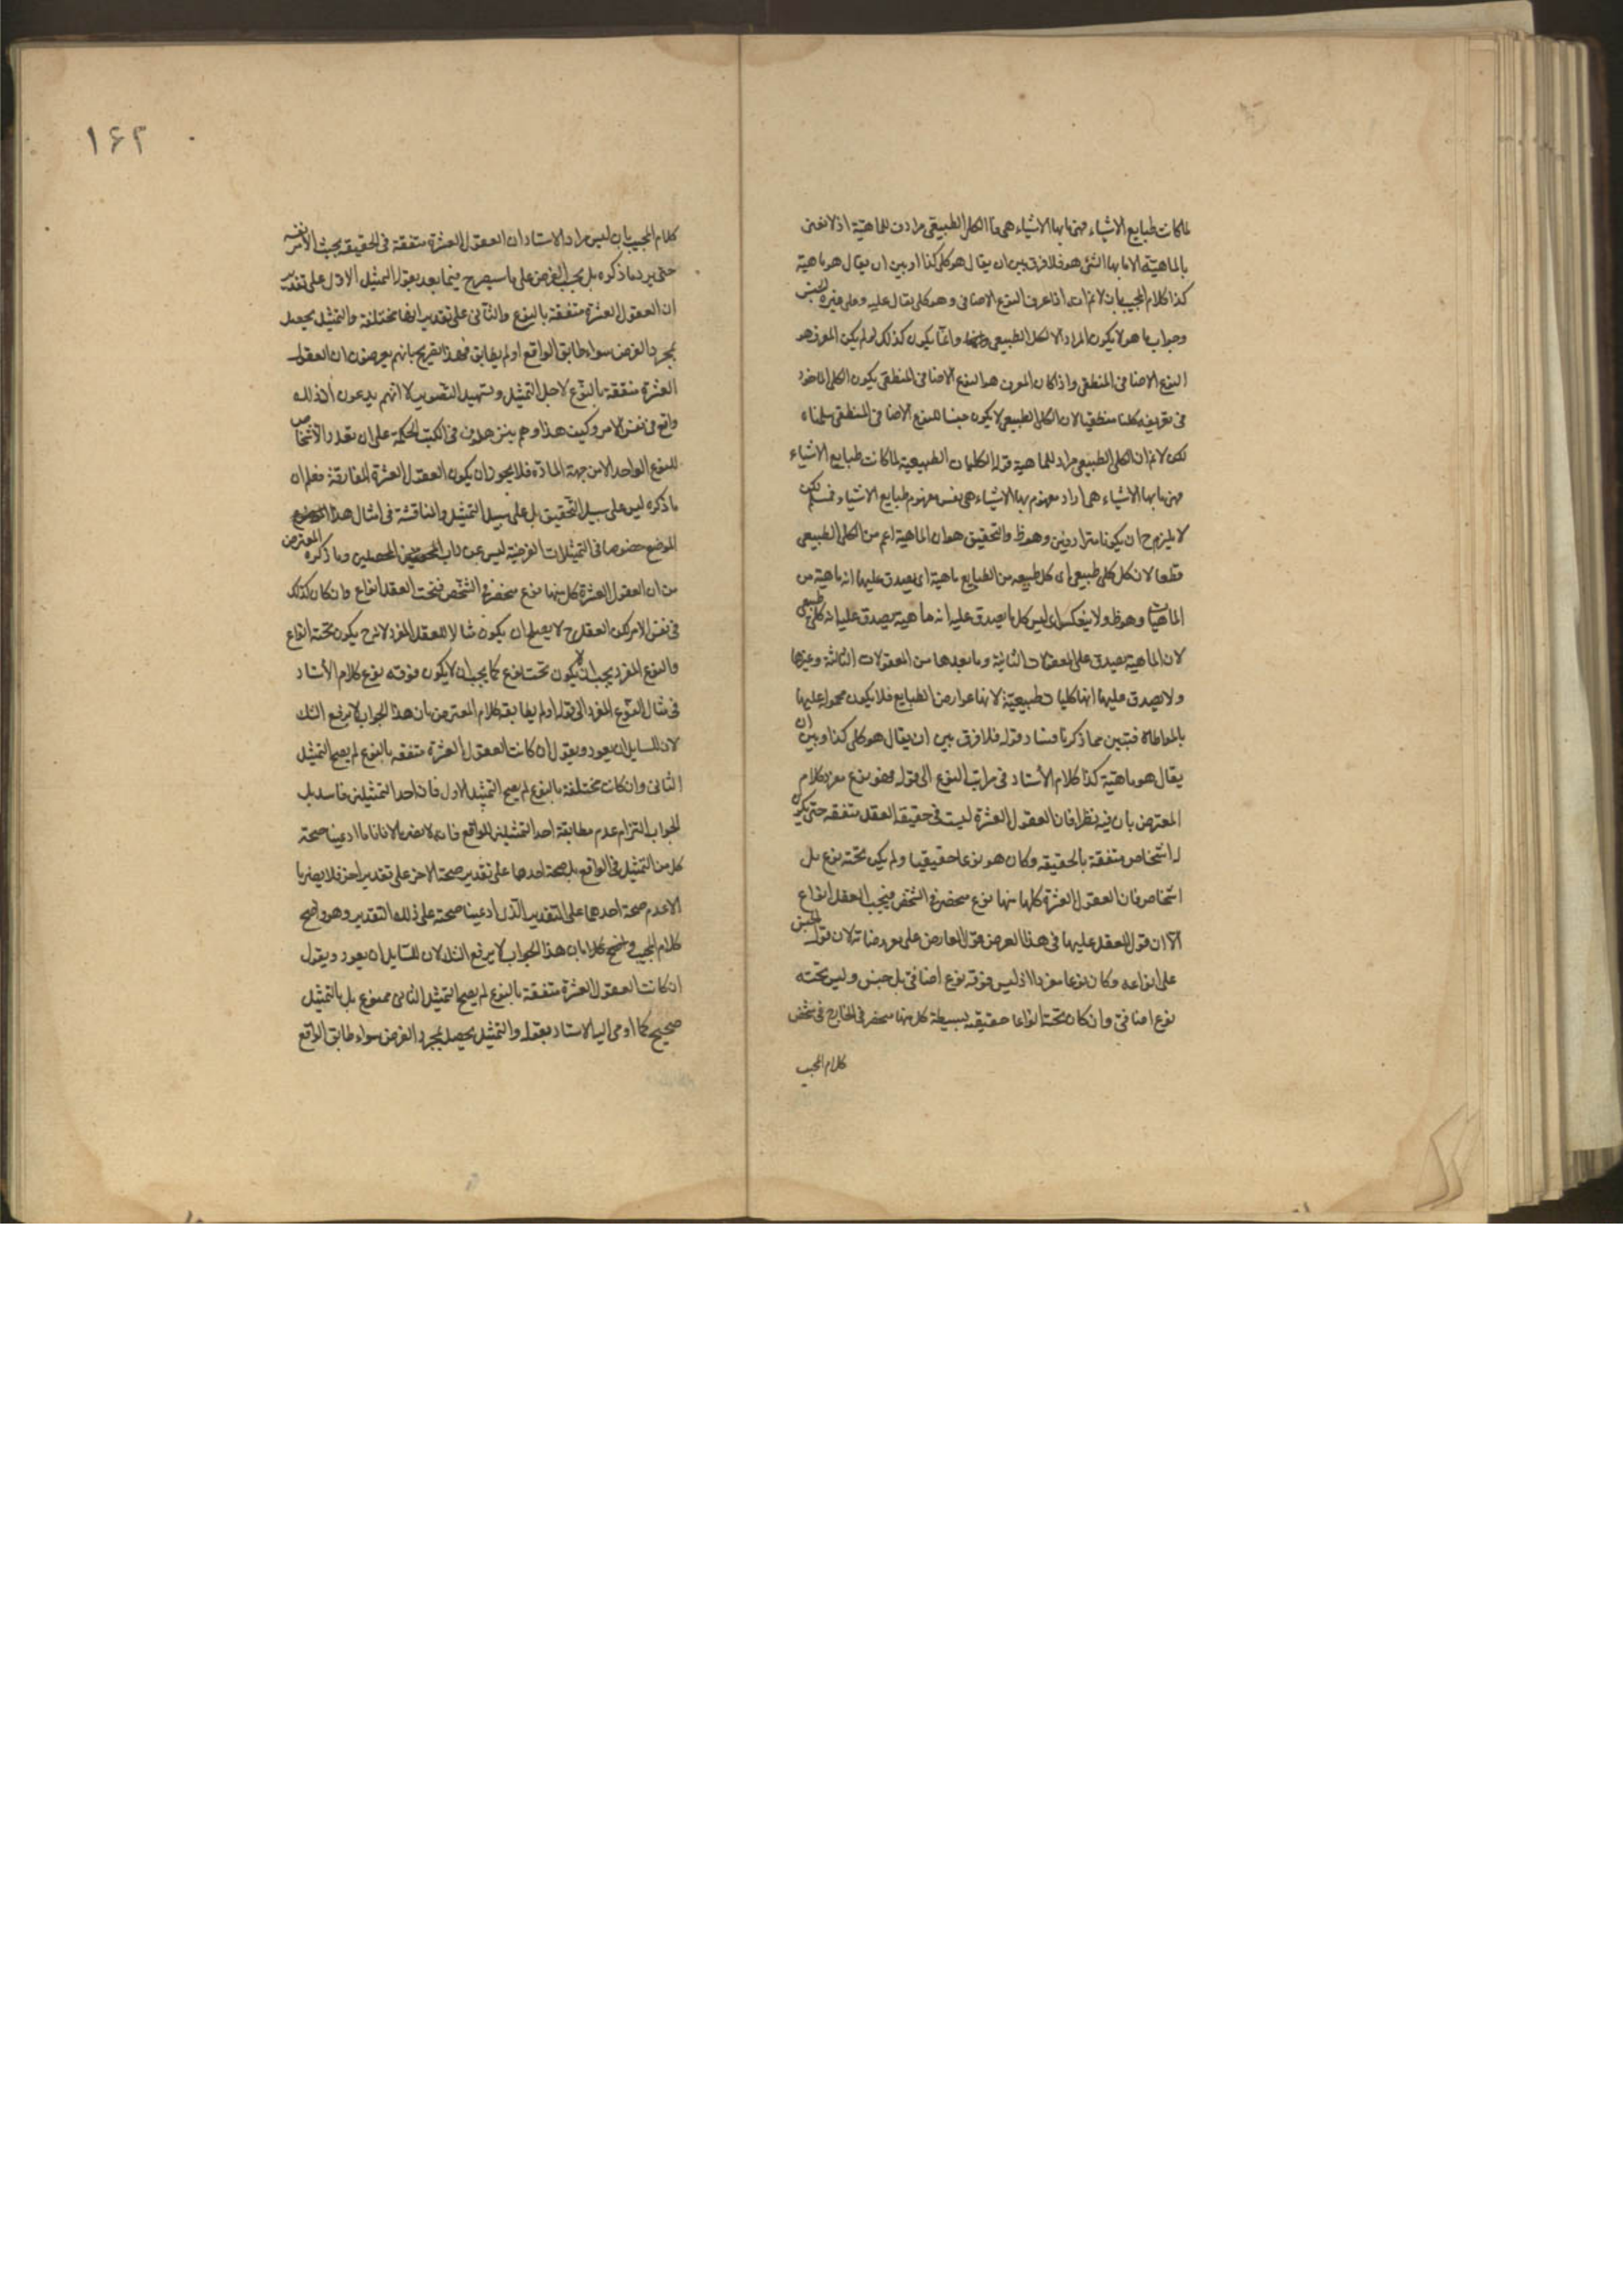 لما كانت طبايع الاشياء فهى ما بها الاشياء هى هى فالكلى الطبيعى مرادف للماهية اذ لا نعنى
بالماهية الا ما بها الشئ هو فلا فرق بين ان يقال هو كلى كذا او بين ان يقال هو ماهية
كذا كلام المجيب بان لا نم انه اذا عرف النوع الاضافى وهو كلى يقال عليه وعلى غيره الجنس
وجواب ما هو لا يكون المراد الا الكلى الطبيعى وانما يكون كذلك لو لم يكن المعرف هو
النوع الاضافى المنطقى واذا كان المعرف هو النوع الاضافى المنطقى يكون الكلى الماخوذ
فى تعريفه كليا منطقيا لان الكلى الطبيعى لا يكون جنسا للنوع الاضافى المنطقى سلمناه
لكن لا نم ان الكلى الطبيعى مراد للماهية قوله الكليات الطبيعية لما كانت طبايع الاشياء
فهى ما بها الاشياء هى اراد مفهوم بها الاشياء هى نفس مفهوم طبايع الاشياء فمسلم لكن
لا يلزم ح ان يكونا مترادفين وهو ظ والتحقيق هو ان الماهية اعم من الكلى الطبيعى
قطعا لان كل كلى طبيعى اى كل طبيعه من الطبايع ماهية اى يصدق عليها انه ماهية من
الماهيات وهو ظ ولا ينعكس اى ليس كل ما يصدق عليه انه ماهية يصدق عليه انه كلى طبيعى
لان الماهية يصدق على المعقولات الثانية وما بعدها من المعقولات الثالثة وغيرها
ولا يصدق عليها انها كليات طبيعية لانها عوارض الطبايع فلا يكون محمولا عليها
بالمواطاة فتبين مما ذكرنا فساد قوله فلا فرق بين ان يقال هو كلى كذا وبين ان
يقال هو ماهية كذا كلام الأستاد فى مراتب النوع الى قوله فهو نوع مفرد كلام
المعترض بان فيه نظرا فان العقول العشرة ليست فى حقيقة العقل متفقه حتى يكون
له اشخاص متفقة بالحقيقه وكان هو نوعا حقيقيا ولم يكن تحته نوع بل
اشخاص فان العقول العشرة كلها منها نوع منحصر فى الشخص فيجب العقل انواع
الا ان قول العقل عليها فى هذا العرض قول العارض على معروضاته لان قول الجنس
على انواعه وكان نوعا مفردا اذ ليس فوقه نوع اضافى بل جنس وليس تحته
نوع اضافى وان كان تحته انواعا حقيقيه بسيطة كل منها منحصر فى الخارج فى شخص
كلام المجيب
١٦٢
كلام المجيب بان ليس مراد الاستاد ان العقول العشرة متفقة فى الحقيقه بحسب الامر نفسه
حتى يرد ما ذكره بل بحسب الفرض على ما سيصرح فيما بعد بقوله التمثيل الاول على تقدير
ان العقول العشرة متفقة بالنوع والثانى على تقدير انها مختلفة والتمثيل يحصل
بمجرد الفرض سواء طابق الواقع او لم يطابق فهذا تصريح بانهم يعرضون ان العقول
العشرة متفقة بالنوع لاجل التمثيل وتسهيل التصوير لا انهم يدعون ان ذلك
واقع فى نفس الامر وكيف هذا وهم يبرهنون فى الكتب الحكمة على ان تعدد الاشخاص
للنوع الواحد الا من جهة المادة فلا يجوز ان يكون العقول العشرة المفارقة فعلم ان
ما ذكره ليس على سبيل التحقيق بل على سبيل التمثيل والمناقشة فى امثال هذا
الموضع خصوصا فى التمثيلات الفرضية ليس من داب المحصلين وما ذكره المعترض
من ان العقول العشرة كل منها نوع منحصر فى الشخص فتحت العقل انواع وان كان كذلك
فى نفس الامر لكن العقل ح لا يصلح ان يكون مثالا للعقل المفرد لانه ح يكون تحته انواع
والنوع المفرد يجب ان لا يكون تحت نوع كما يجب ان لا يكون فوقه نوع كلام الأستاد
فى مثال النوع المفرد الى قوله او لم يطابقه كلام المعترض بان هذا الجواب لا يرفع الشك
لان للسايل ان يعود ويقول ان كانت العقول العشرة متفقه بالنوع لم يصح التمثيل
الثانى وان كانت مختلفة بالنوع لم يصح التمثيل الاول فان احد التمثيلين فاسد بل
الجواب التزام عدم مطابقة احد التمثيلين للواقع فانه لا يضر بالاناما ادعينا صحة
كل من التمثيل فى الواقع بل صحة احدهما على تقدير صحة الاخر على تقدير اخر فلا يضرنا
الا عدم صحة احدهما على التقدير الذى ادعينا صحته على ذلك التقدير وهو واضح
كلام المجيب واضح كلا بان هذا الجواب لا يرفع الشك لان للسايل ان يعود ويقول
ان كانت العقول العشرة متفقة بالنوع لم يصح التمثيل الثانى ممنوع بل التمثيل
صحيح كما اومى اليه الاستاد بقوله والتمثيل يحصل بمجرد الفرض سواء طابق الواقع